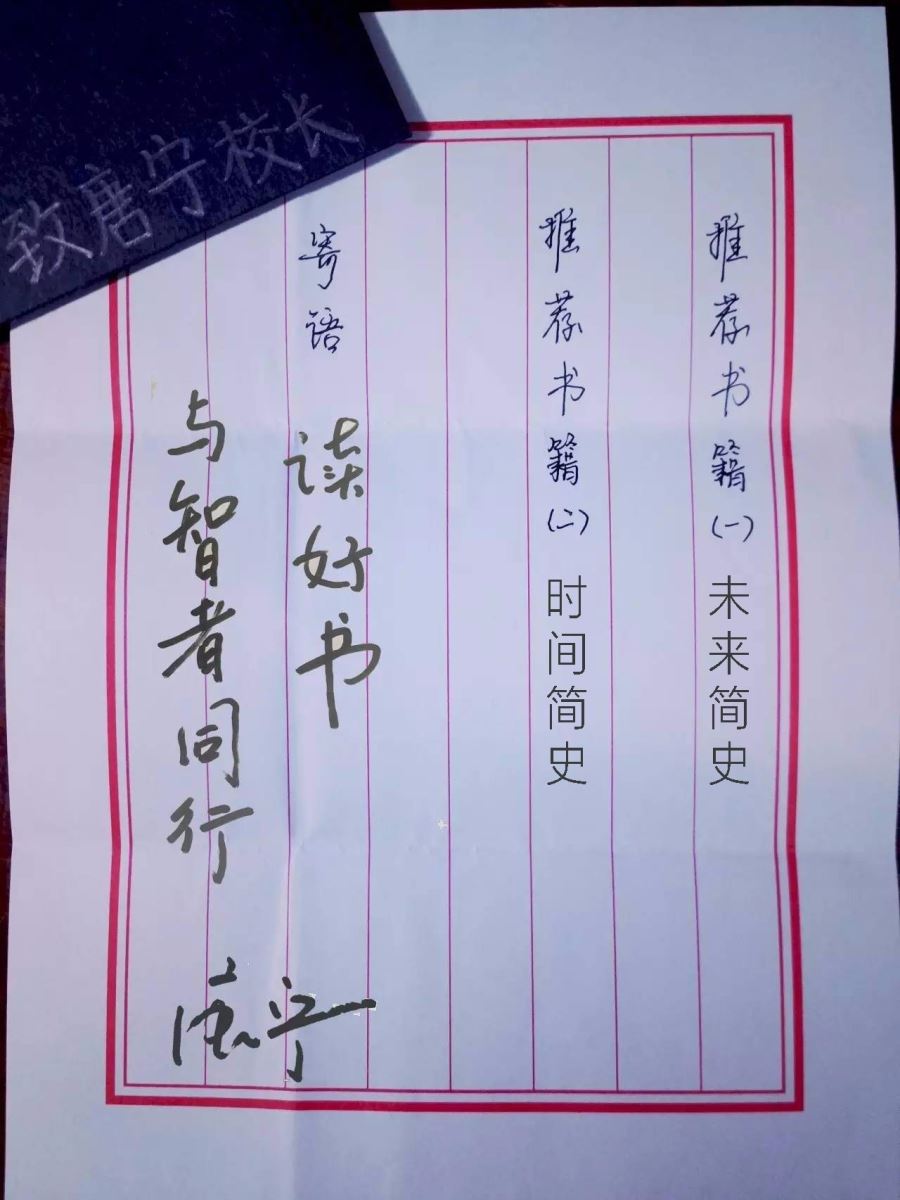 致唐宁校长
推荐书籍(一) 未来简史
推荐书籍(二) 时间简史
寄语 读好书
与智者同行
唐宁